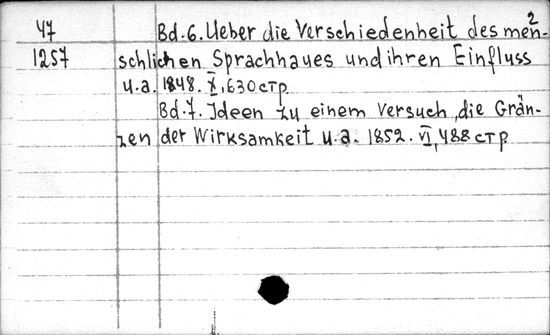 2
47 Bd.6. Ueber die Verschiedenheit des men-
1257 schlichen Sprachhaues und ihren Einfluss
u.a. 1848. X, 630 стр.
Bd.7. Ideen zu einem Versuch, die Grän-
zen der Wirksamkeit u.a. 1852. VI, 488 стр